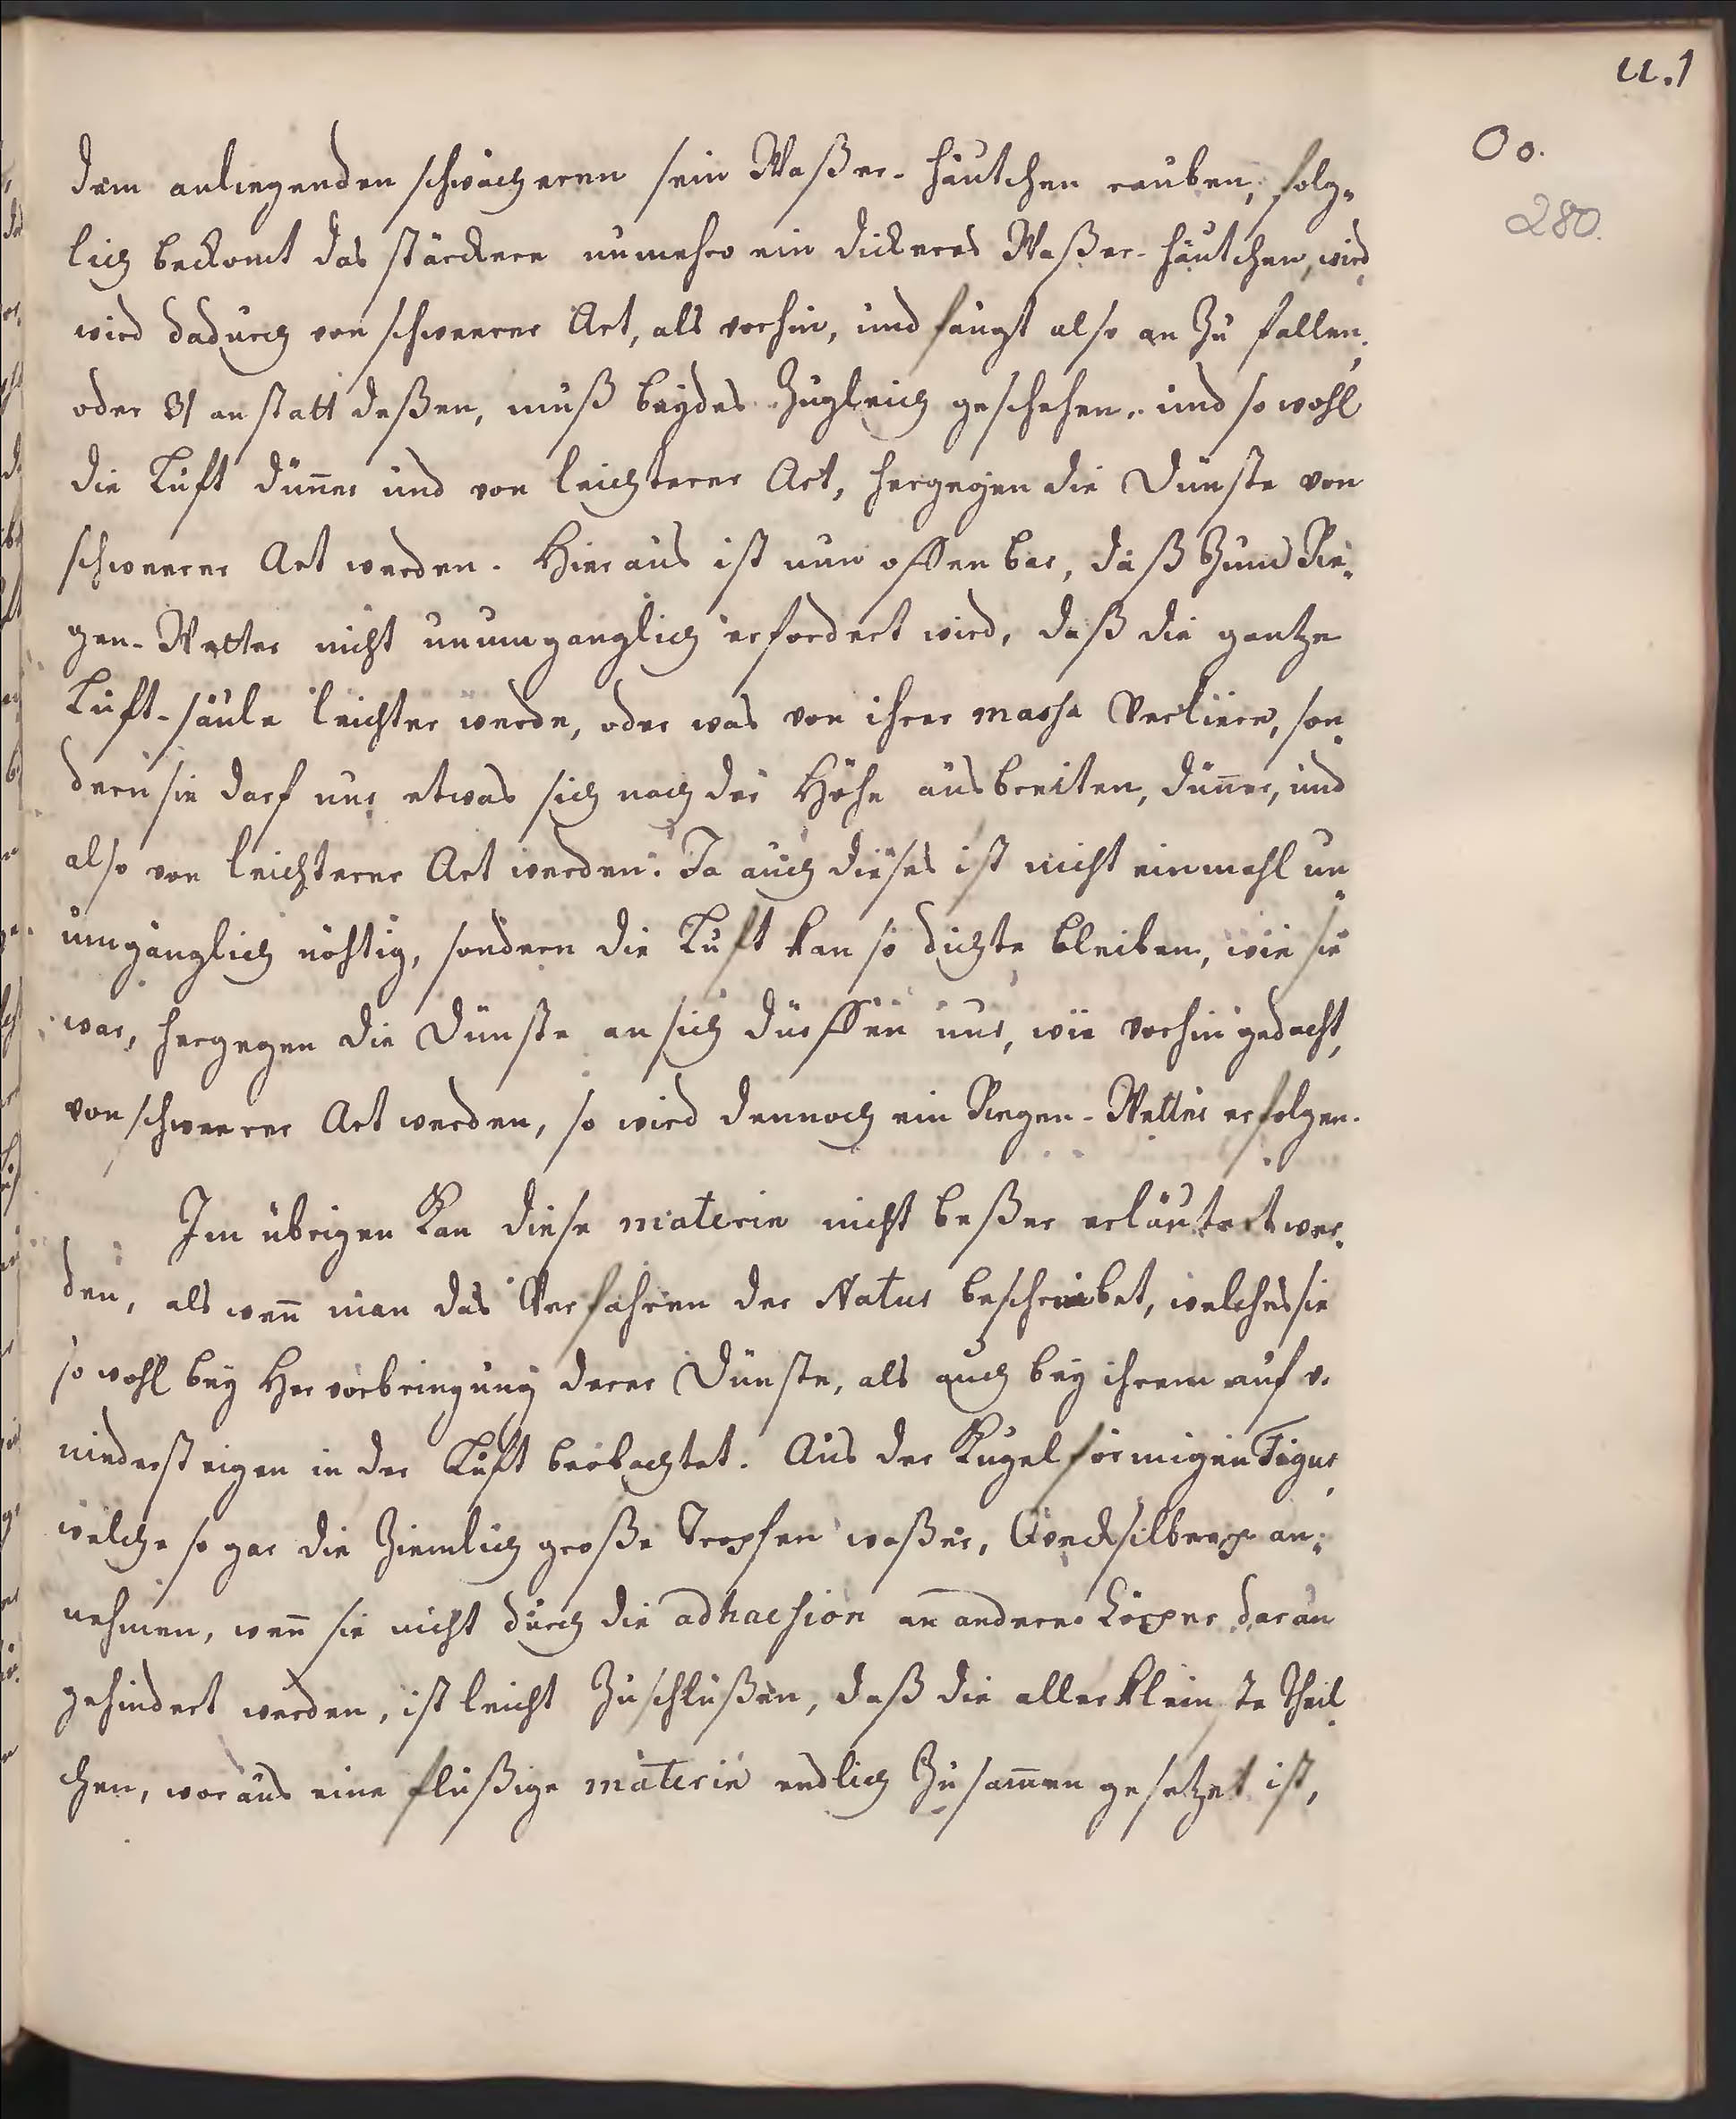 u.1
Oo.
280.
dem anliegenden schwächeren sein Waßer-häutchen rauben, folg-
lich beckomt das stärckere nunmehro ein dickeres Waßer-häutchen, wird
wird dadurch von schweerer Art, als vorhin, und fängt also an zu fallen;
oder 3/ anstatt deßen, muß beydes zugleich geschehen, und so wohl
die Luft dün̄er und von leichterer Art, hergegen die Dünste von
schweerer Art werden. Hieraus ist nun offenbar, daß zum Re-
gen-Wetter nicht unumganglich erfordert wird, daß die gantze
Luft-säule leichter werde, oder was von ihrer massa verliere, son-
dern sie darf nur etwas sich nach der Höhe ausbreiten, dün̄er, und
also von leichterer Art werden. Ja auch dieses ist nicht einmahl un-
umgänglich nöhtig, sondern die Luft kan so dichte bleiben, wie sie
war, hergegen die Dünste an sich dürffen nur, wie vorhin gedacht,
von schweerer Art werden, so wird dennoch ein Regen-Wetter erfolgen.
Im übrigen kan diese materie nicht beßer erläutert wer-
den, als wen̄ man das Verfahren der Natur beschreibet, welches sie
so wohl bey Hervorbringung derer Dünste, als auch bey ihrem auf u.
niedersteigen in der Luft beobachtet. Aus der Kugelförmigen Figur,
welche so gar die ziemlich große Tropfen waßer, Quecksilber an-
nehmen, wen̄ sie nicht durch die adhaesion an andere Cörper daran
gehindert werden, ist leicht zu schlüßen, daß die allerkleinste Theil-
chen, woraus eine flüßige materie endlich zusam̄en gesetzet ist,